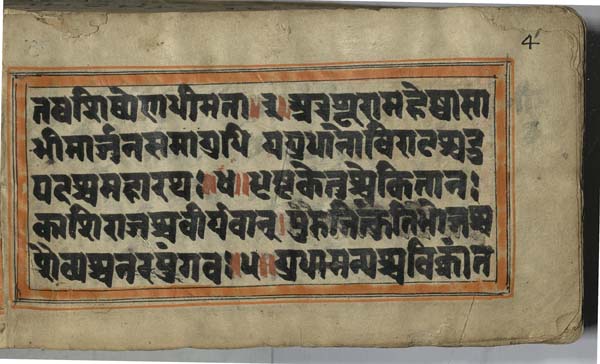 4
तवशिष्येणधीमता॥३॥अत्रशूरामहेष्वासा
भीमार्जुनसमायुधि युयुधानोविराटश्चद्रु
पदश्चमहारथः॥४॥धृष्टकेतुश्चेकितानः
काशिराजश्चवीर्यवान्।पुरुजित्कुंतिभोजश्च
शैव्यश्चनरपुंगवः॥५॥युधामन्युश्चविक्रांत